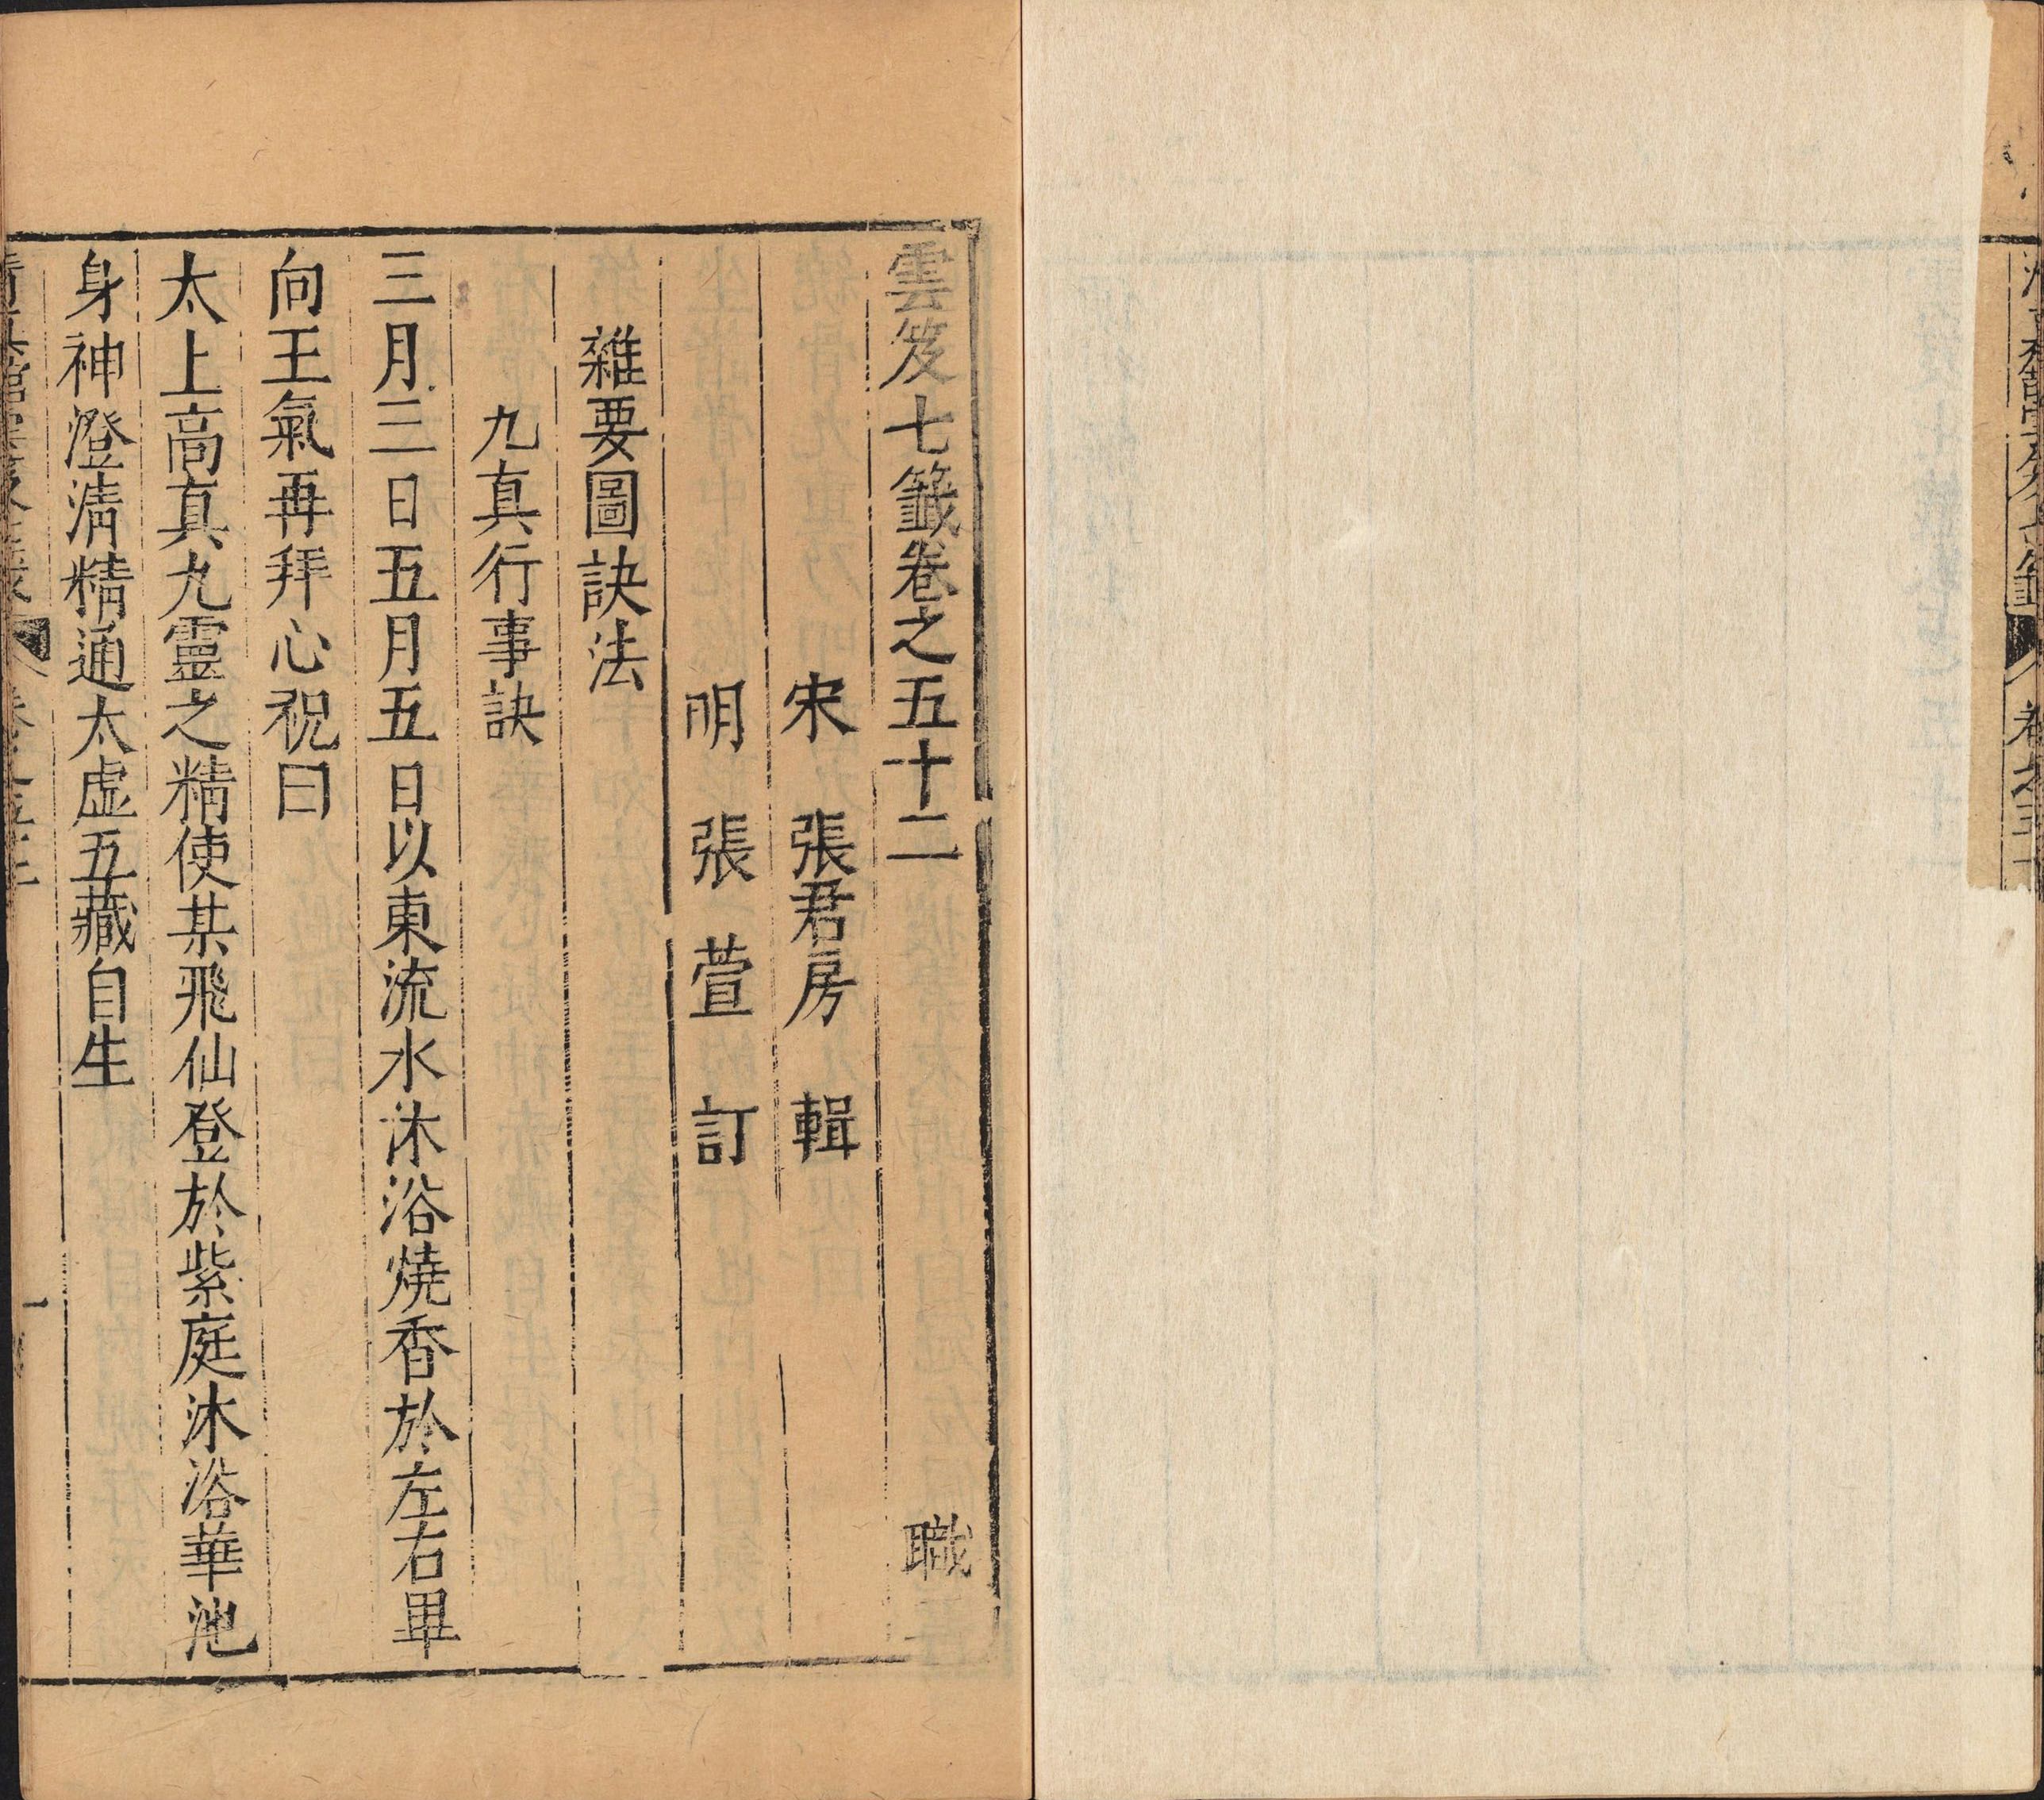 雲笈七籤卷之五十二 職
宋 張君房 輯
明 張萱 訂
雜要圖訣法
九真行事訣
三月三日五月五日以東流水沐浴燒香於左右畢
向王氣再拜心祝曰
太上高真九靈之精使某飛仙登於紫庭沐浴華池
身神澄清精通太虛五藏自生
一